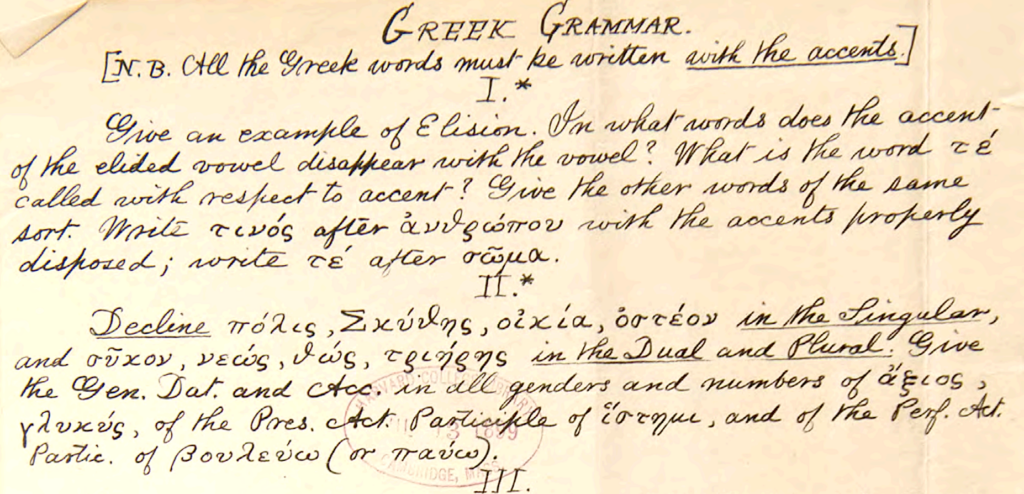 GREEK GRAMMAR.
[N.B. All the Greek words must be written with the accents.]
I.*
Give an example of Elision. In what words does the accent
of the elided vowel disappear with the vowel? What is the word τέ
called with respect to accent? Give the other words of the same
sort. Write τινός after ἀνθρώπου with the accents properly
disposed; write τέ after σῶμα.
II.*
Decline πόλις, Σκύθης, οἰκία, ὀστέον in the Singular,
and σῦκον, νεώς, θώς, τριήρης in the Dual and Plural. Give
the Gen. Dat. and Acc. in all genders and numbers of ἄξιος,
γλυκύς, of the Pres. Act. Participle of ἵστημι, and of the Perf. Act.
Partic. of βουλεύω (or παύω).
HARVARD COLLEGE LIBRARY
CAMBRIDGE, MASS.
III.